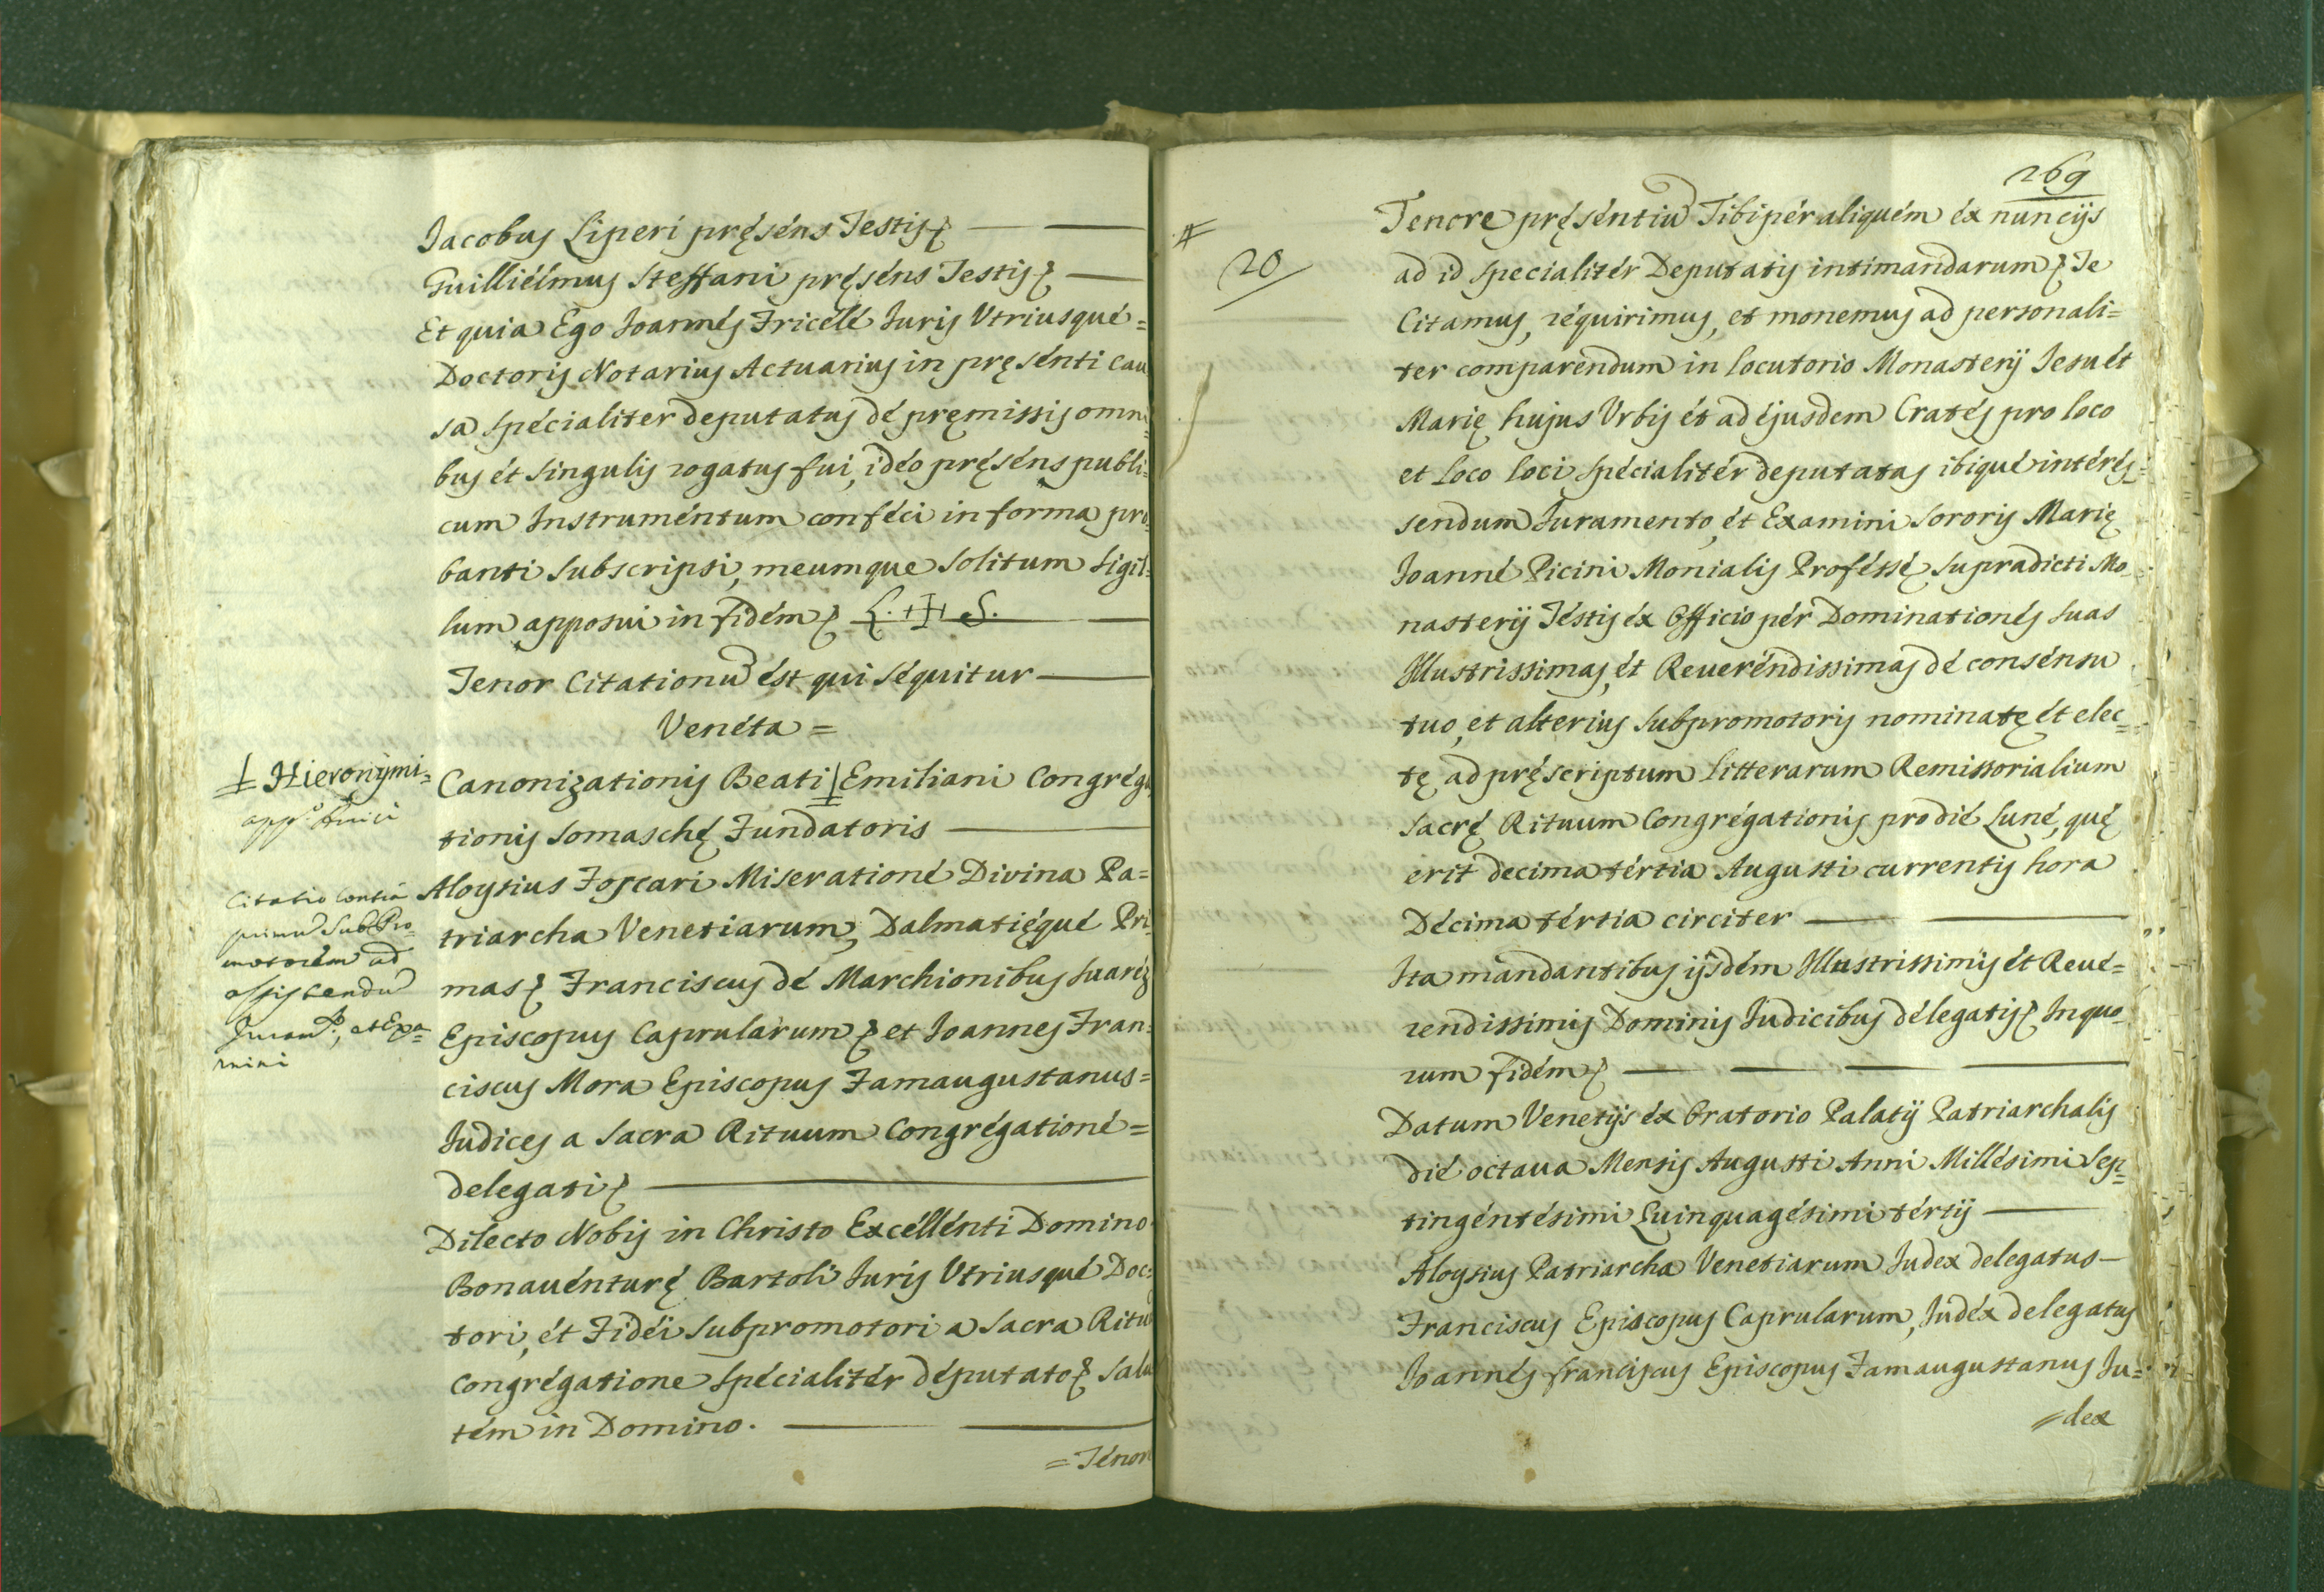 Jacobus Liperi pręsens Testis
Guillielmus Steffani pręsens Testis
Et quia Ego Joannes Fricele Juris Vtriusque =
Doctoris Notarius Actuarius in pręsenti Cau
sa specialiter deputatus de pręmissis omni
bus et singulis rogatus fui, ideo pręsens publi=
cum Instrumentum confeci in forma pro=
banti subscripsi, meumque solitum sigil=
lum apposui in fidem L. + S.
Tenor Citationū est qui sequitur
Veneta =
Canonizationis Beati Emiliani Congrega
tionis Somaschę Fundatoris
Aloysius Foscari Miseratione Divina Pa=
triarcha Venetiarum, Dalmatięque Pri=
mas Franciscus de Marchionibus Suarez
Episcopus Caprularum et Joannes Fran=
ciscus Mora Episcopus Famaugustanus =
Judices a Sacra Rituum Congregatione =
delegati
Dilecto Nobis in Christo Excellenti Domino
Bonauenturę Bartoli Juris Vtriusque Doc=
tori, et Fidei Subpromotori a Sacra Rituū
Congregatione specialiter deputato Salu
tem in Domino.
= Tenore
Hieronymi =
Citatio Contra
primū SubPro=
motorem ad
assistendū
Juram.to, et Exa=
mini
269
20
Tenore pręsentiū Tibi per aliquem ex nuncijs
ad id specialiter Deputatis intimandarum Te
Citamus, requirimus, et monemus ad personali=
ter comparendum in locutorio Monasterij Jesu et
Marię hujus Vrbis et ad ejusdem Crates pro loco
et loco loci specialiter deputatas ibique interes=
sendum Juramento, et Examini Sororis Marię
Joanne Picini Monialis Professę supradicti Mo=
nasterij Testis ex Officio per Dominationes suas
Illustrissimas, et Reuerendissimas de consensu
tuo, et alterius Subpromotoris nominatę et elec=
tę ad pręscriptum Litterarum Remissorialium
Sacrę Rituum Congregationis pro die Lune, quę
erit decima tertia Augusti currentis hora
Decima tertia circiter
Ita mandantibus ijsdem Illustrissimis et Reue=
rendissimis Dominis Judicibus delegatis In quo=
rum fidem
Datum Venetijs ex Oratorio Palatij Patriarchalis
die octaua Mensis Augusti Anni Millesimi Sep=
tingentesimi Quinquagesimi tertij
Aloysius Patriarcha Venetiarum Judex delegatus
Franciscus Episcopus Caprularum, Judex delegatus
Joannes Franciscus Episcopus Famaugustanus Ju=
= dex